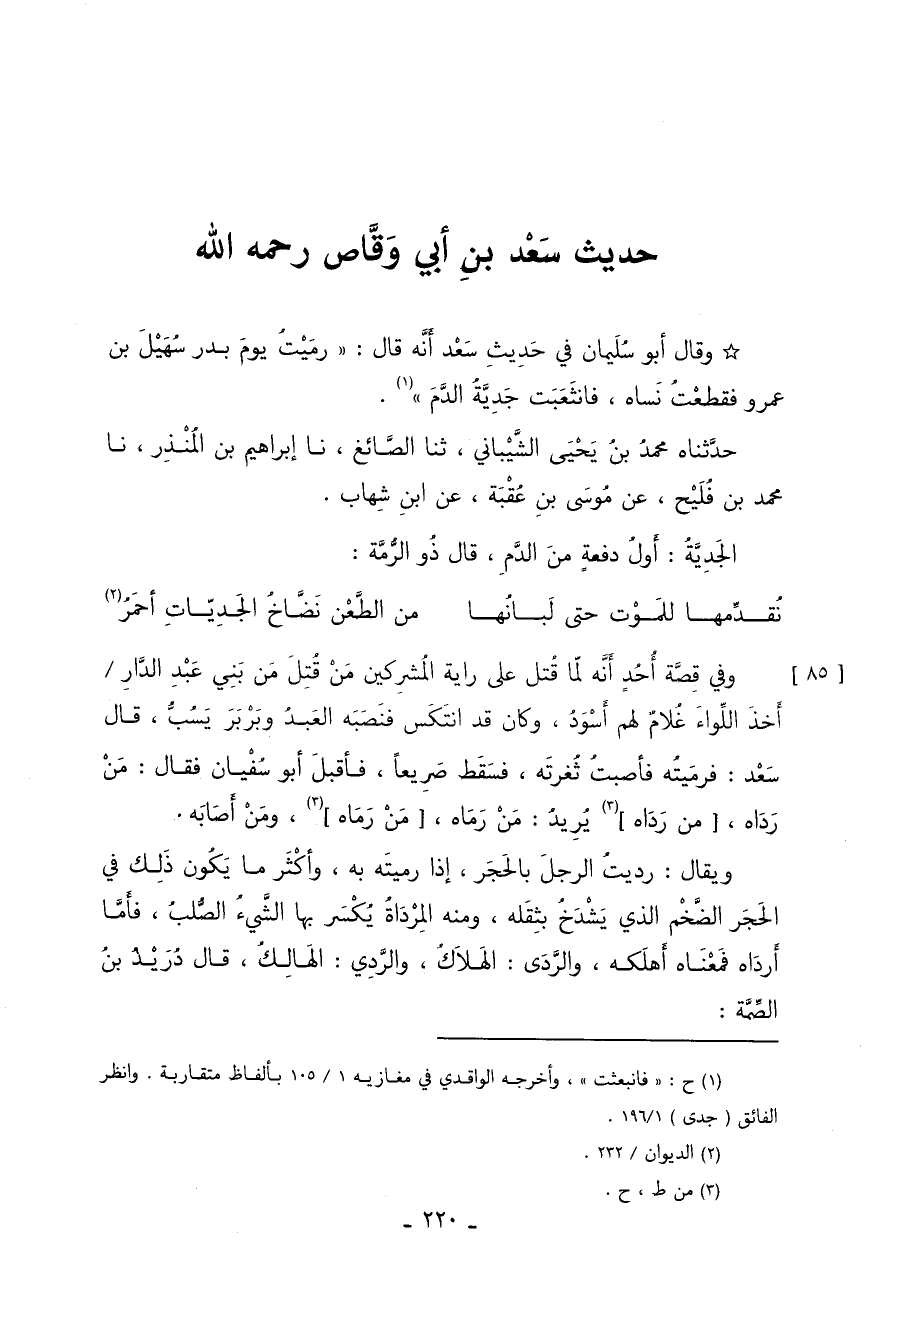 حديث سَعْد بنِ أبي وَقَّاص رحمه الله
☆ وقال أبو سُليمان في حَدِيثِ سَعْد أَنَّه قال : « رمَيْتُ يومَ بدر سُهَيْلَ بن
عمرو فقطعْتُ نَساه ، فانثَعَبَت جَدِيَّةُ الدَّمَ »(١) .
حدَّثناه محمدُ بنُ يَحْيَى الشَّيْباني ، ثنا الصَّائغ ، نا إبراهيم بن المُنْذِر ، نا
محمد بن فُلَيْح ، عن مُوسَى بنِ عُقْبَة ، عن ابنِ شِهاب .
الجَدِيَّةُ : أَولُ دفعةٍ منَ الدَّمِ ، قال ذُو الرُّمَّة :
نُقَدِّمها للمَوْت حتى لَبانُها من الطَّعْن نَضَّاخُ الجَديّاتِ أحمَرُ(٢)
[ ٨٥ ] وفي قِصَّة أُحُدٍ أَنَّه لمّا قُتل على راية المُشركين مَنْ قُتِلَ مَن بَنِي عَبْدِ الدَّار /
أَخذَ اللِّواءَ غُلامٌ لهم أسْوَدُ ، وكان قد انتَكَس فنَصَبَه العَبدُ وبَرْبَرَ يَسُبُّ ، قال
سَعْد : فرميتُه فأصبتُ ثُغرتَه ، فسَقَط صَرِيعاً ، فأقبلَ أبو سُفْيان فقال : مَنْ
رَدَاه ، [ من رَدَاه ](٣) يُرِيدُ : مَنْ رَمَاه ، [ مَنْ رَمَاه ](٣) ، ومَنْ أَصَابَه .
ويقال : رديتُ الرجلَ بالحَجَر ، إذا رميتَه به ، وأكْثَر ما يَكُون ذَلِك في
الحَجَر الضَّخْم الذي يَشْدَخُ بثِقَله ، ومنه المِرْدَاةُ يُكْسَر بها الشَّيءُ الصُّلبُ ، فأَمَّا
أردَاه فَمَعْنَاه أَهلَكه ، والرَّدَى : الهَلاَكُ ، والرَّدِي : الهَالِكُ ، قال دُرَيْدُ بنُ
الصِّمَّة :
(١) ح : « فانبعثت » ، وأخرجه الواقدي في مغازيه ١ / ١٠٥ بألفاظ متقاربة . وانظر
الفائق ( جدى ) ١٩٦/١ .
(٢) الديوان / ٢٣٢ .
(٣) من ط ، ح .
- ٢٢٠ -